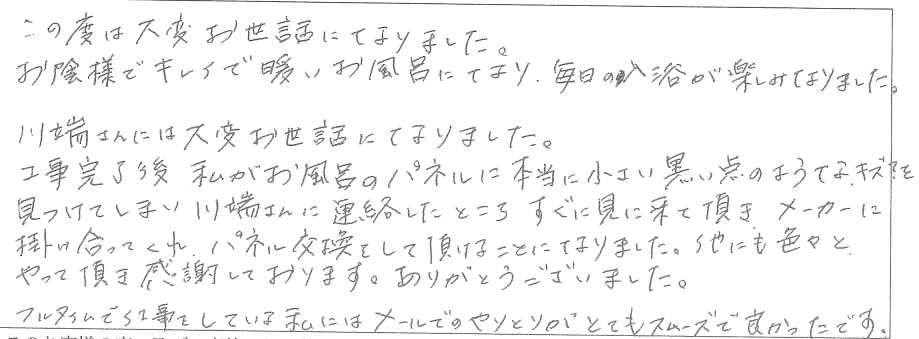 この度は大変お世話になりました。
お陰様でキレイで暖いお風呂になり、毎日の入浴が楽しみなりました。
川端さんには大変お世話になりました。
工事完了後 私がお風呂のパネルに本当に小さい黒い点のようなキズ?を
見つけてしまい川端さんに連絡したところ すぐに見に来て頂き メーカーに
掛け合ってくれ、パネル交換をして頂けることになりました。他にも色々と
やって頂き感謝しております。ありがとうございました。
フルタイムで仕事をしている私にはメールでのやりとりがとてもスムーズで良かったです。